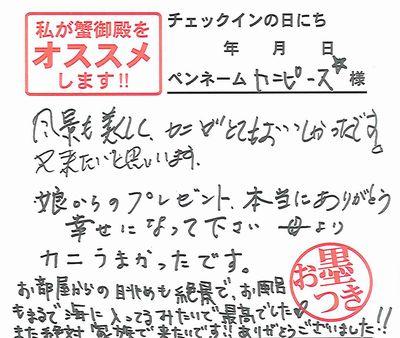 私が蟹御殿を
オススメ
します!!
チェックインの日にち
年 月 日
ペンネーム カニピース☆ 様
風景も美しく、カニがとてもおいしかったです。
又来たいと思います。
娘からのプレゼント、本当にありがとう
幸せになって下さい 母より
カニうまかったです。
お墨つき
お部屋からの眺めも絶景で、お風呂
もまるで海に入ってるみたいで最高でした♡
また絶対家族で来たいです!!ありがとうございました!!